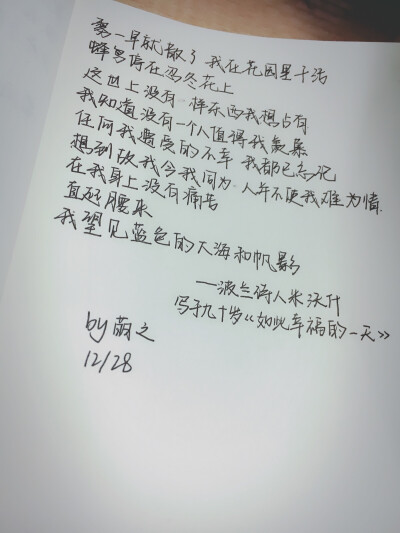 雾一早就散了 我在花园里干活
蜂鸟停在忍冬花上
这世上没有一样东西我想占有
我知道没有一个人值得我羡慕
任何我遭受的不幸 我都已忘记
想到故我今我同为一人并不使我难为情
在我身上没有痛苦
直起腰来
我望见蓝色的大海和帆影
——波兰诗人米沃什
写于九十岁《如此幸福的一天》
by 萌之
12/28